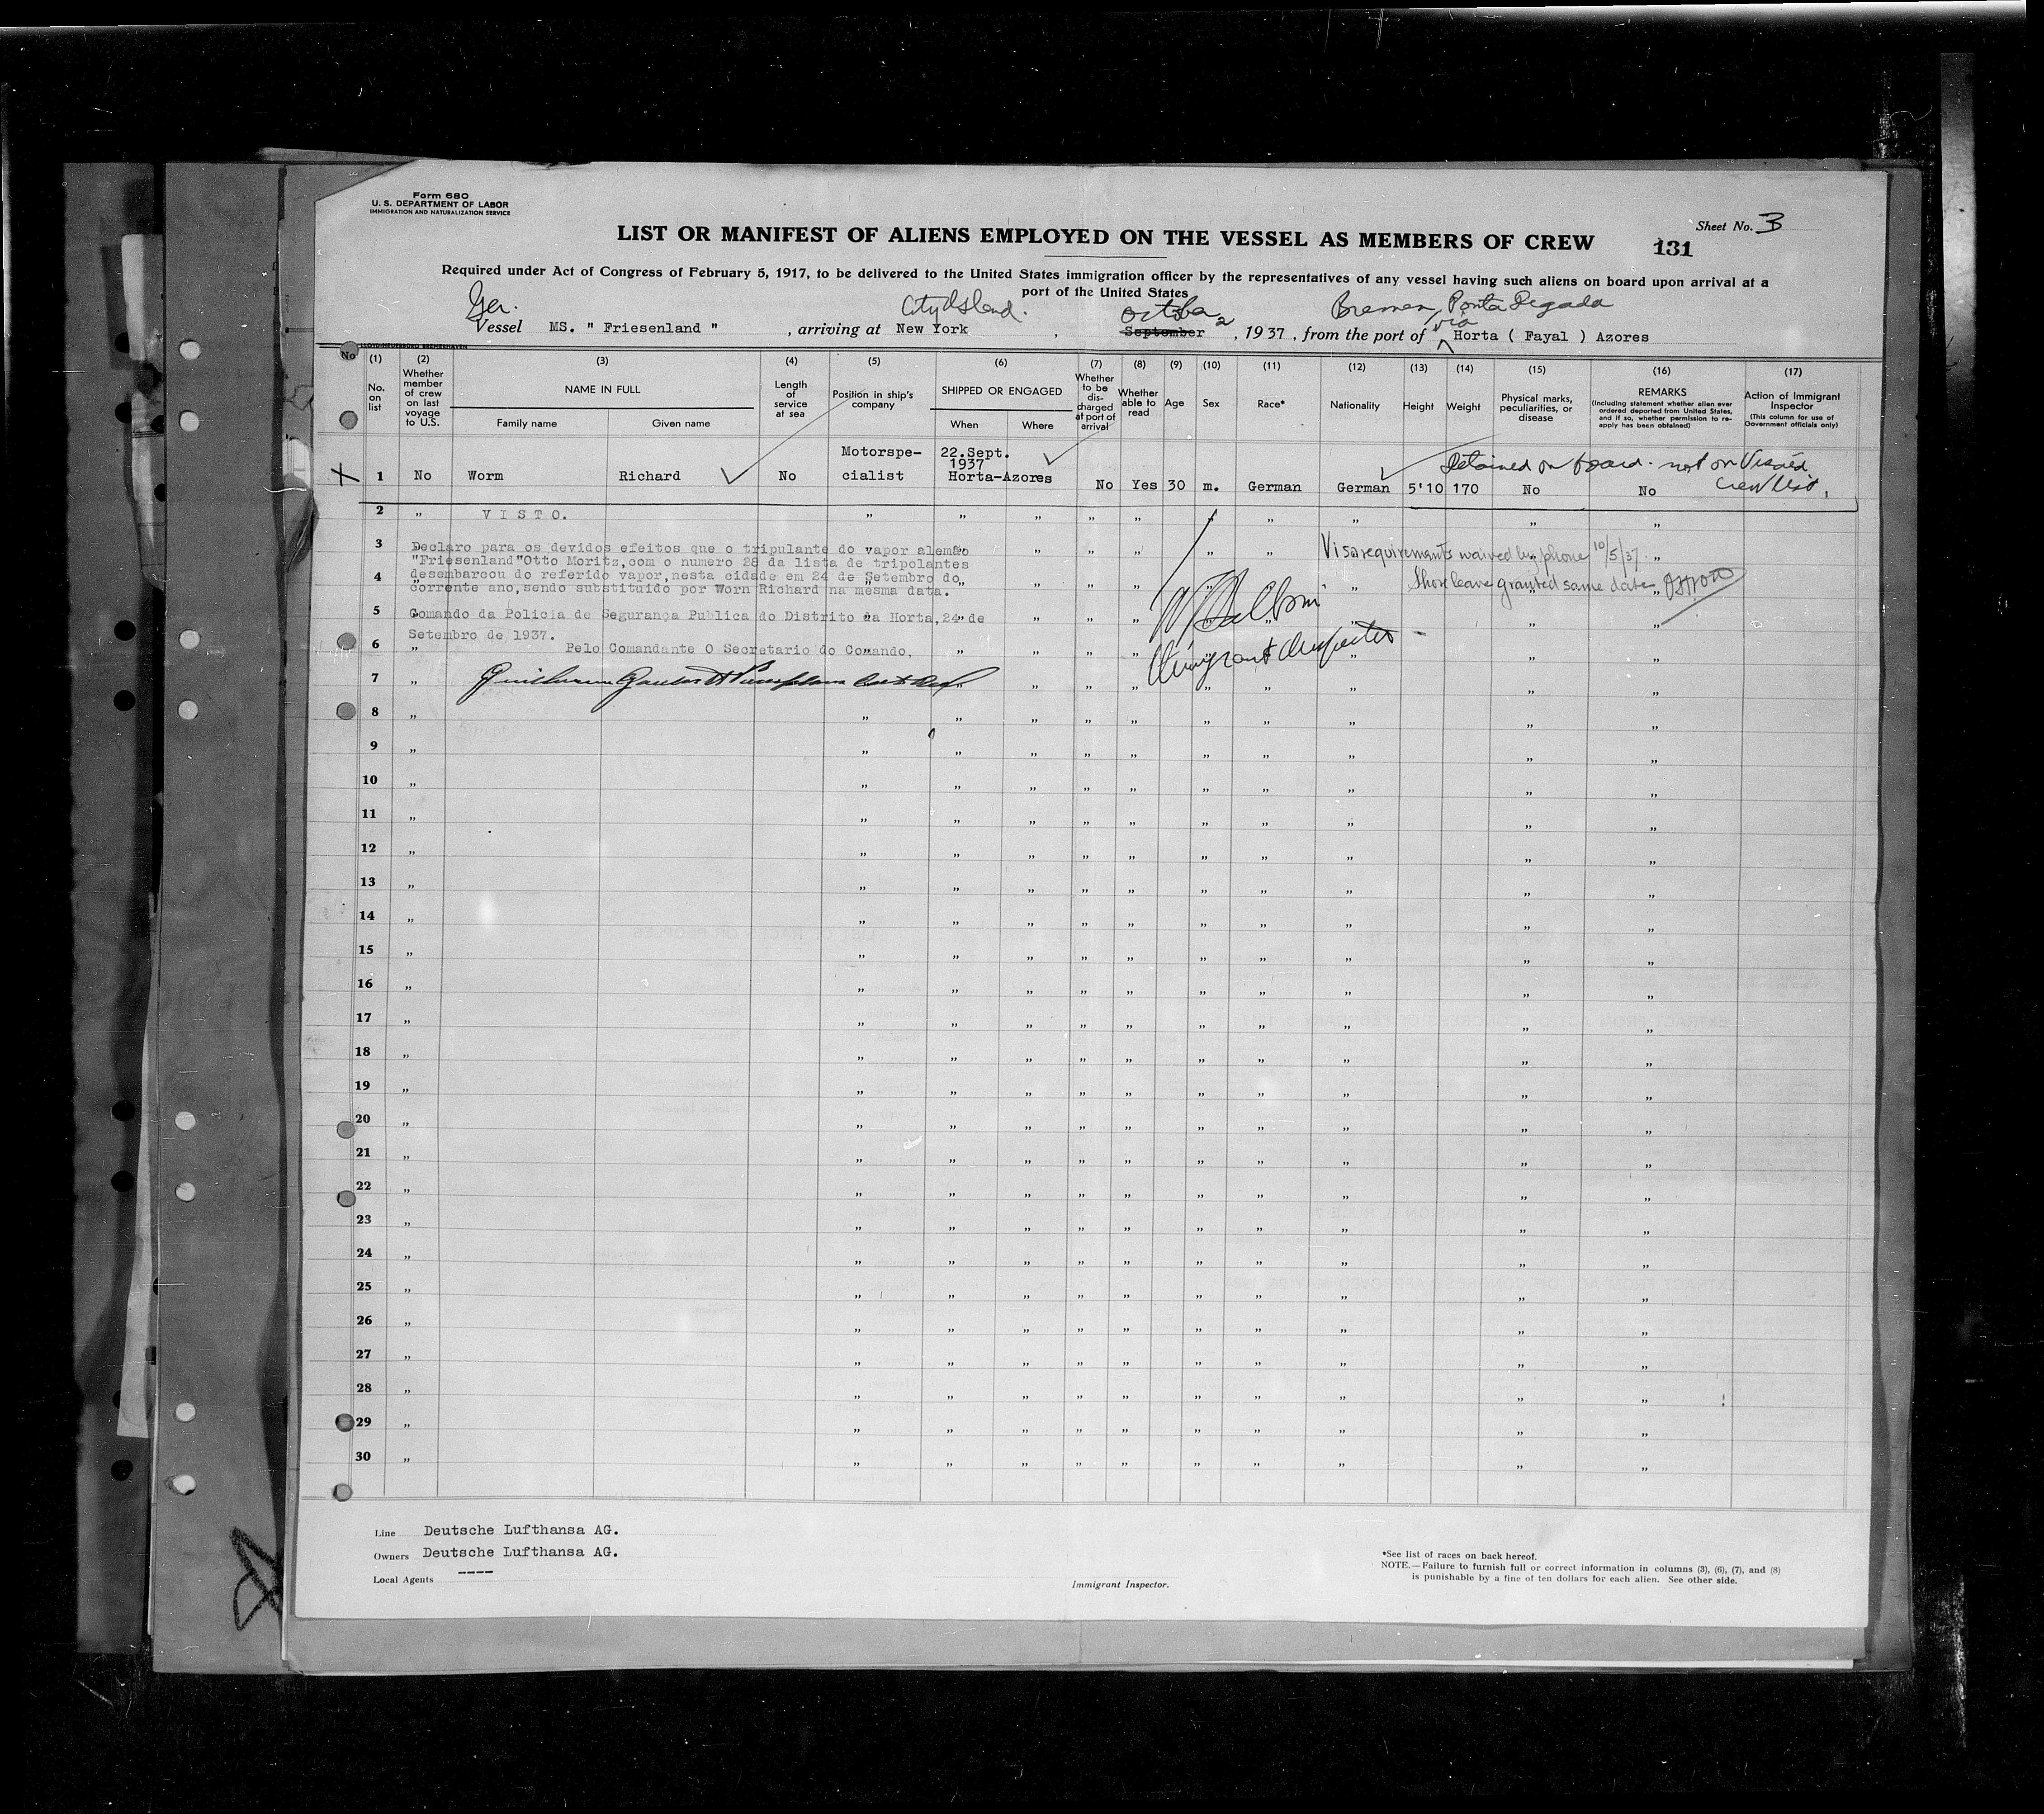 Form 680
U. S. DEPARTMENT OF LABOR
IMMIGRATION AND NATURALIZATION SERVICE
Sheet No. 3
LIST OR MANIFEST OF ALIENS EMPLOYED ON THE VESSEL AS MEMBERS OF CREW
131
Required under Act of Congress of February 5, 1917, to be delivered to the United States immigration officer by the representatives of any vessel having such aliens on board upon arrival at a
port of the United States
Ger. City Island. October 2 Bremen, Ponta Degada via
Vessel MS. " Friesenland " , arriving at New York , September , 1937 , from the port of Horta ( Fayal ) Azores
No (1) (2) (3) (4) (5) (6) (7) (8) (9) (10) (11) (12) (13) (14) (15) (16) (17)
No. on list
Whether member of crew on last voyage to U.S.
NAME IN FULL
Family name Given name
Length of service at sea
Position in ship's company
SHIPPED OR ENGAGED
When Where
Whether to be discharged at port of arrival
Whether able to read
Age
Sex
Race*
Nationality
Height
Weight
Physical marks, peculiarities, or disease
REMARKS
(Including statement whether alien ever ordered deported from United States, and if so, whether permission to re-apply has been obtained)
Action of Immigrant Inspector
(This column for use of Government officials only)
Motorspe- 22.Sept.
1937
1 No Worm Richard No cialist Horta-Azores No Yes 30 m. German German 5'10 170 No No
Detained on board. not on Visaed
Crew list.
2 „ V I S T O. „ „ „ „ „ „ „ „ „ „
3 Declaro para os devidos efeitos que o tripulante do vapor alemão
"Friesenland"Otto Moritz,com o numero 28 da lista de tripolantes
4 desembarcou do referido vapor,nesta cidade em 24 de Setembro do
corrente ano,sendo substituido por Worn Richard na mesma data.
Visa requirements waived by phone 10/5/37.
Shore leave granted same date
5 Comando da Policia de Segurança Publica do Distrito da Horta,24 de
Setembro de 1937.
6 Pelo Comandante O Secretario do Comando,
Immigrant Inspector
7 „ „ „ „ „ „ „ „ „ „
8 „ „ „ „ „ „ „ „ „ „ „
9 „ „ „ „ „ „ „ „ „ „ „
10 „ „ „ „ „ „ „ „ „ „ „
11 „ „ „ „ „ „ „ „ „ „ „
12 „ „ „ „ „ „ „ „ „ „ „
13 „ „ „ „ „ „ „ „ „ „ „
14 „ „ „ „ „ „ „ „ „ „ „
15 „ „ „ „ „ „ „ „ „ „ „
16 „ „ „ „ „ „ „ „ „ „ „
17 „ „ „ „ „ „ „ „ „ „ „
18 „ „ „ „ „ „ „ „ „ „ „
19 „ „ „ „ „ „ „ „ „ „ „
20 „ „ „ „ „ „ „ „ „ „ „
21 „ „ „ „ „ „ „ „ „ „ „
22 „ „ „ „ „ „ „ „ „ „ „
23 „ „ „ „ „ „ „ „ „ „ „
24 „ „ „ „ „ „ „ „ „ „ „
25 „ „ „ „ „ „ „ „ „ „ „
26 „ „ „ „ „ „ „ „ „ „ „
27 „ „ „ „ „ „ „ „ „ „ „
28 „ „ „ „ „ „ „ „ „ „ „
29 „ „ „ „ „ „ „ „ „ „ „
30 „ „ „ „ „ „ „ „ „ „ „
Line Deutsche Lufthansa AG.
Owners Deutsche Lufthansa AG.
Local Agents ----
Immigrant Inspector.
*See list of races on back hereof.
NOTE.—Failure to furnish full or correct information in columns (3), (6), (7), and (8)
is punishable by a fine of ten dollars for each alien. See other side.